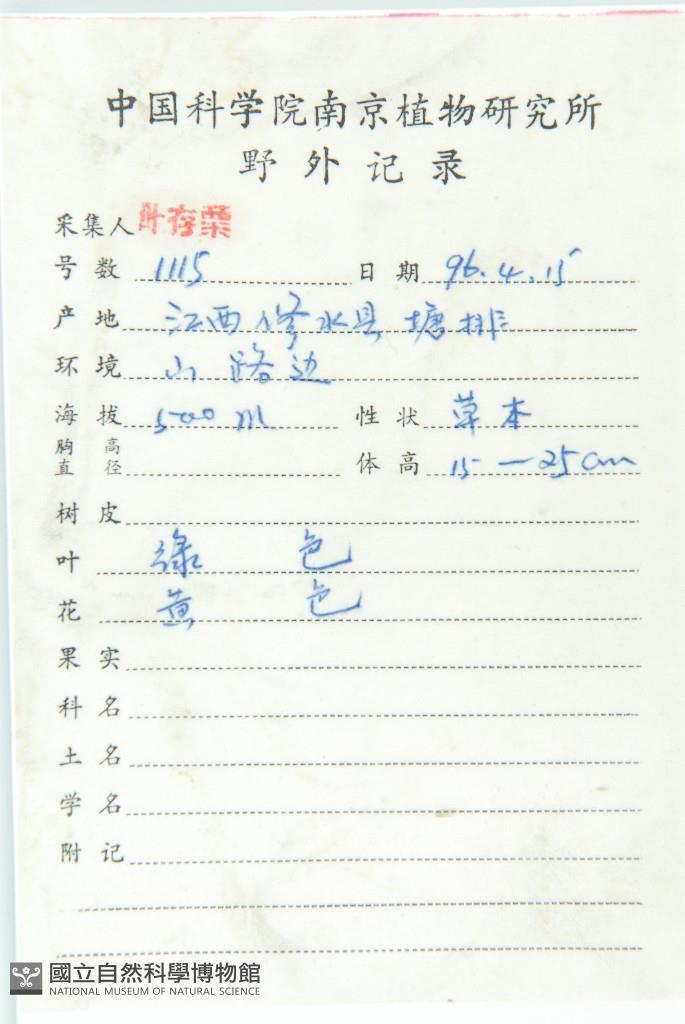 中国科学院南京植物研究所
野外记录
采集人 叶存粟
号数 1115 日期 96.4.15
产地 江西修水县塘排
环境 山路边
海拔 500m 性状 草本
胸高直径 体高 15—25cm
树皮
叶 绿色
花 黄色
果实
科名
土名
学名
附记
國立自然科學博物館
NATIONAL MUSEUM OF NATURAL SCIENCE